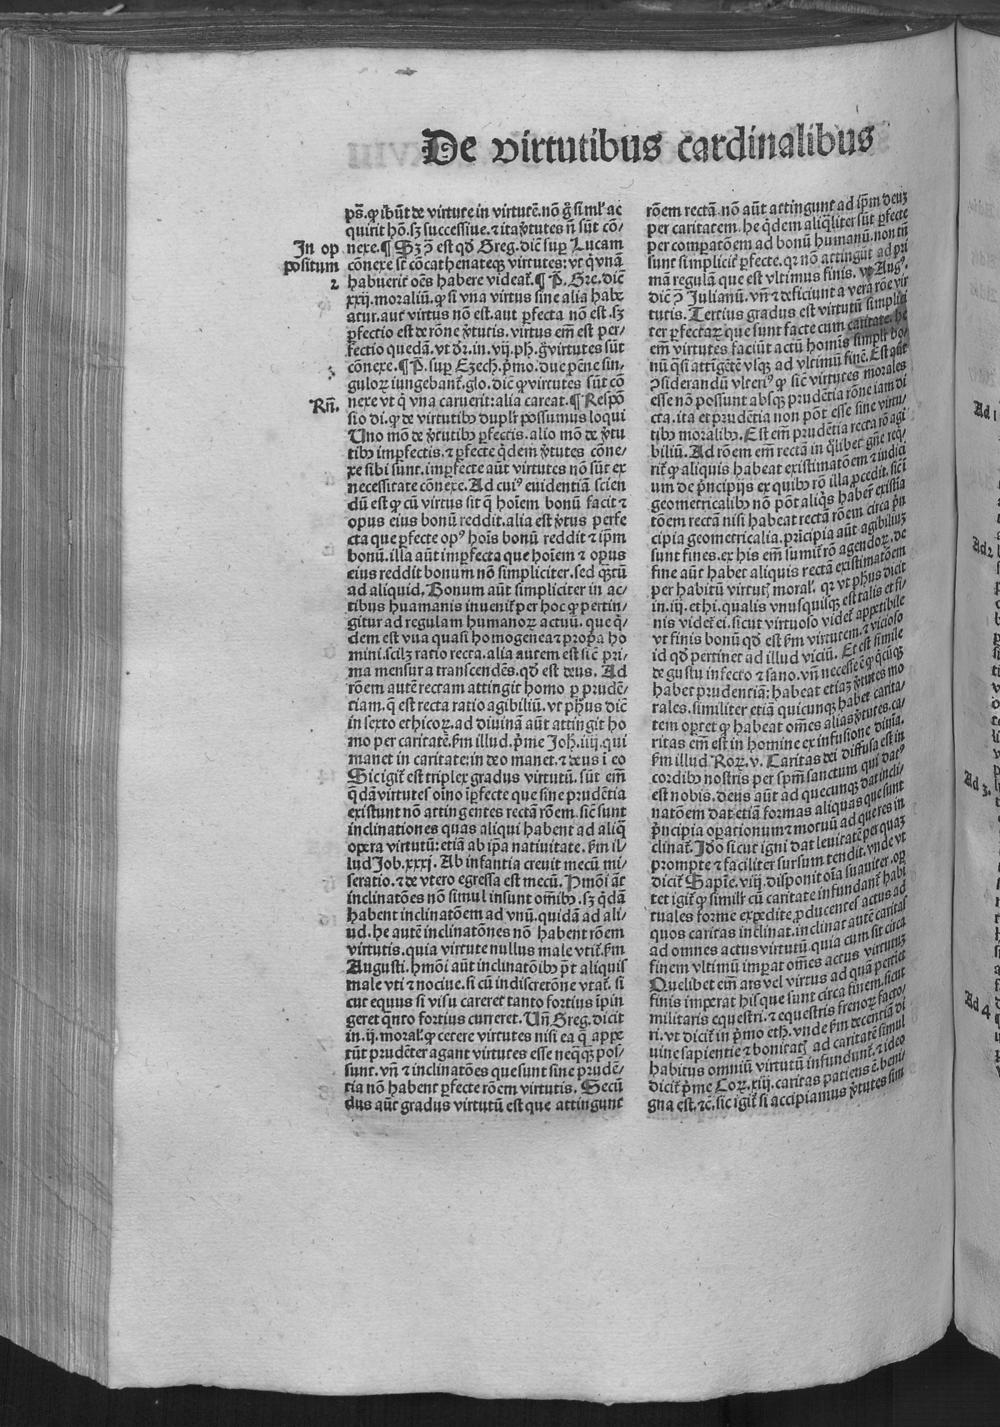 De virtutibus cardinalibus
ps̄. ꝙ ibūt de virtute in virtutē. nō ḡ siml̕ ac
quirit hō. sꝫ successiue. ⁊ ita v̓tutes n̄ sūt cō/
In op
positum
2
nexe. ¶ Sꝫ ɔ̄ est qd̄ Greg. dic̄ suꝑ Lucam
cōnexe sc̄ cōcathenateqꝫ virtutes: vt q̇ vnā
habuerit oēs habere videat᷑. ¶ P̄. Gre. dic̄
xxij. moraliū. ꝙ si vna virtus sine alia habe
atur. aut virtus nō est. aut ꝑfecta nō est. sꝫ
ꝑfectio est de rōne v̓tutis. virtus em̄ est per/
fectio quedā. vt dr̄. in. vij. ph. ḡ virtutes sūt
3
cōnexe. ¶ P̄. suꝑ Ezech. p̓mo. due pene sin/
guloꝝ iungebant᷑. glo. dic̄ ꝙ virtutes sūt cō
Rn̄.
nexe vt q̇ vna caruerit: alia careat. ¶ Respō
sio di. ꝙ de virtutibꝰ dupl̕r possumus loqui
Uno mō de v̓tutibꝰ ꝑfectis. alio mō de v̓tu
tibꝰ imꝑfectis. ⁊ ꝑfecte q̇dem v̓tutes cōne/
xe sibi sunt. imꝑfecte aūt virtutes nō sūt ex
necessitate cōnexe. Ad cuiꝰ euidentiā scien
dū est ꝙ cū virtus sit q̄ hoīem bonū facit ⁊
opus eius bonū reddit. alia est v̓tus perfe
cta que ꝑfecte opꝰ hoīs bonū reddit ⁊ ip̄m
bonū. illa aūt imꝑfecta que hoīem ⁊ opus
eius reddit bonum nō simpliciter. sed qꝫtū
ad aliquid. Bonum aūt simpliciter in ac/
tibus huamanis inuenit᷑ per hoc ꝙ pertin/
gitur ad regulam humanoꝝ actuū. que q̇/
dem est vna quasi homogenea ⁊ prop̓a ho
mini. scilꝫ ratio recta. alia autem est sic̄ pri/
ma mensura transcendēs. qd̄ est deus. Ad
rōem autē rectam attingit homo ꝑ prudē/
tiam. q̄ est recta ratio agibiliū. vt ph̓us dic̄
in sexto ethicoꝝ. ad diuinā aūt attingit ho
mo per caritatē. ẜm illud. p̓me Joh. iiij. qui
manet in caritate: in deo manet. ⁊ deus ī eo
Sic igit᷑ est triplex gradus virtutū. sūt em̄
q̇dā virtutes oīno īꝑfecte que sine prudētia
existunt nō attingentes rectā rōem. sic̄ sunt
inclinationes quas aliqui habent ad aliq̄
opera virtutū: etiā ab ip̄a natiuitate. ẜm il/
lud Job. xxxj. Ab infantia creuit mecū mi/
seratio. ⁊ de vtero egressa est mecū. Hmōi āt
inclinatōes nō simul insunt om̄ibꝰ. sꝫ q̇dā
habent inclinatōem ad vnū. quidā ad ali/
ud. he autē inclinatōnes nō habent rōem
virtutis. quia virtute nullus male vtit᷑. ẜm
Augusti. hmōi aūt inclinatōibꝰ p̄t aliquis
male vti ⁊ nociue. si cū indiscretōne vtat᷑. si
cut equus si visu careret tanto fortius īpin
geret q̄nto fortius curreret. Un̄ Greg. dicit
in. ij. moral̕. ꝙ cetere virtutes nisi ea q̄ appe
tūt prudēter agant virtutes esse neq̄qꝫ pos/
sunt. vn̄ ⁊ inclinatōes que sunt sine prudē/
tia nō habent ꝑfecte rōem virtutis. Secū
dus aūt gradus virtutū est que attingunt
rōem rectā. nō aūt attingunt ad ip̄m deuꝫ
per caritatem. he q̇dem aliql̕iter sūt ꝑfecte
per compatōem ad bonū humanū. non tn̄
sunt simplicit᷑ ꝑfecte. qꝛ nō attingūt ad pri
mā regulā que est vltimus finis. vt Augꝰ.
dic̄ ɔ̄ Julianū. vn̄ ⁊ deficiunt a vera rōe vir
tutis. Tertius gradus est virtutū simplici
ter ꝑfectaꝝ que sunt facte cum caritate. he
em̄ virtutes faciūt actū homīs simpl̕r bo/
nū q̄si attīgētē vsqꝫ ad vltimū finē. Est aūt
ɔsiderandū vlteriꝰ ꝙ sic̄ virtutes morales
esse nō possunt absqꝫ prudētia rōne iam di
cta. ita et prudētia non pōt esse sine virtu/
tibꝰ moralibꝰ. Est em̄ prudētia recta rō agi
biliū. Ad rōem em̄ rectā in q̇libet gn̄e req̇/
rit᷑ ꝙ aliquis habeat existimatōem ⁊ iudici
um de p̓ncipijs ex quibꝰ rō illa ꝓcedit. sic̄ī
geometricalibꝰ nō pōt aliq̇s haber̄ existīa
tōem rectā nisi habeat rectā rōem circa p̓n
cipia geometricalia. prīcipia aūt agibiliuꝫ
sunt fines. ex his em̄ sumit᷑ rō agendoꝝ. de
fine aūt habet aliquis rectā existimatōem
per habitū virtutꝭ moral̕. qꝛ vt ph̓us dicit
in. iij. ethi. qualis vnusquisqꝫ est talis et fi/
nis videt᷑ ei. sicut virtuoso videt᷑ appetibile
vt finis bonū qd̄ est ẜm virtutem. ⁊ vicioso
id qd̄ pertinet ad illud viciū. Et est simile
de gustu infecto ⁊ sano. vn̄ necesse ē ꝙ q̇cūqꝫ
habet prudentiā: habeat etiaꝫ v̓tutes mo
rales. similiter etiā quicunqꝫ habet carita/
tem oꝑtet ꝙ habeat om̄es alias v̓tutes. ca/
ritas em̄ est in homine ex infusione diuīa.
ẜm illud Roꝝ. v. Caritas dei diffusa est in
cordibꝰ nostris per spm̄ sanctum qui datꝰ
est nobis. deus aūt ad quecunqꝫ dat incli/
natōem dat etiā formas aliquas que sunt
p̓ncipia oꝑationum ⁊ motuū ad que res in
clinat᷑. Jdo sicut igni dat leuitatē per quaꝫ
prompte ⁊ faciliter sursum tendit. vnde vt
dicit᷑ Sapīe. viij. disponit oīa suauiter. oꝑ
tet igit᷑ ꝙ simil̕r cū caritate infundant᷑ habi
tuales forme expedite ꝓducentes actus ad
quos caritas inclinat. inclinat autē caritas
ad omnes actus virtutū. quia cum sit circa
finem vltimū imꝑat om̄es actus virtutuꝫ
Quelibet em̄ ars vel virtus ad quā pertiet
finis imperat his que sunt circa finem. sicut
militaris equestri. ⁊ equestris frenoꝝ facto/
ri. vt dicit᷑ in p̓mo eth. vnde ẜm decentiā di
uine sapientie ⁊ bonitatꝭ ad caritatē simul
habitus omniū virtutū infundunt᷑. ⁊ ideo
dicit᷑ p̓me Coꝝ. xiij. caritas patiens ē. beni/
gna est. ⁊c̄. sic igit᷑ si accipiamus v̓tutes sim
Ad 1
Ad 2
Ad 3.
Ad 4